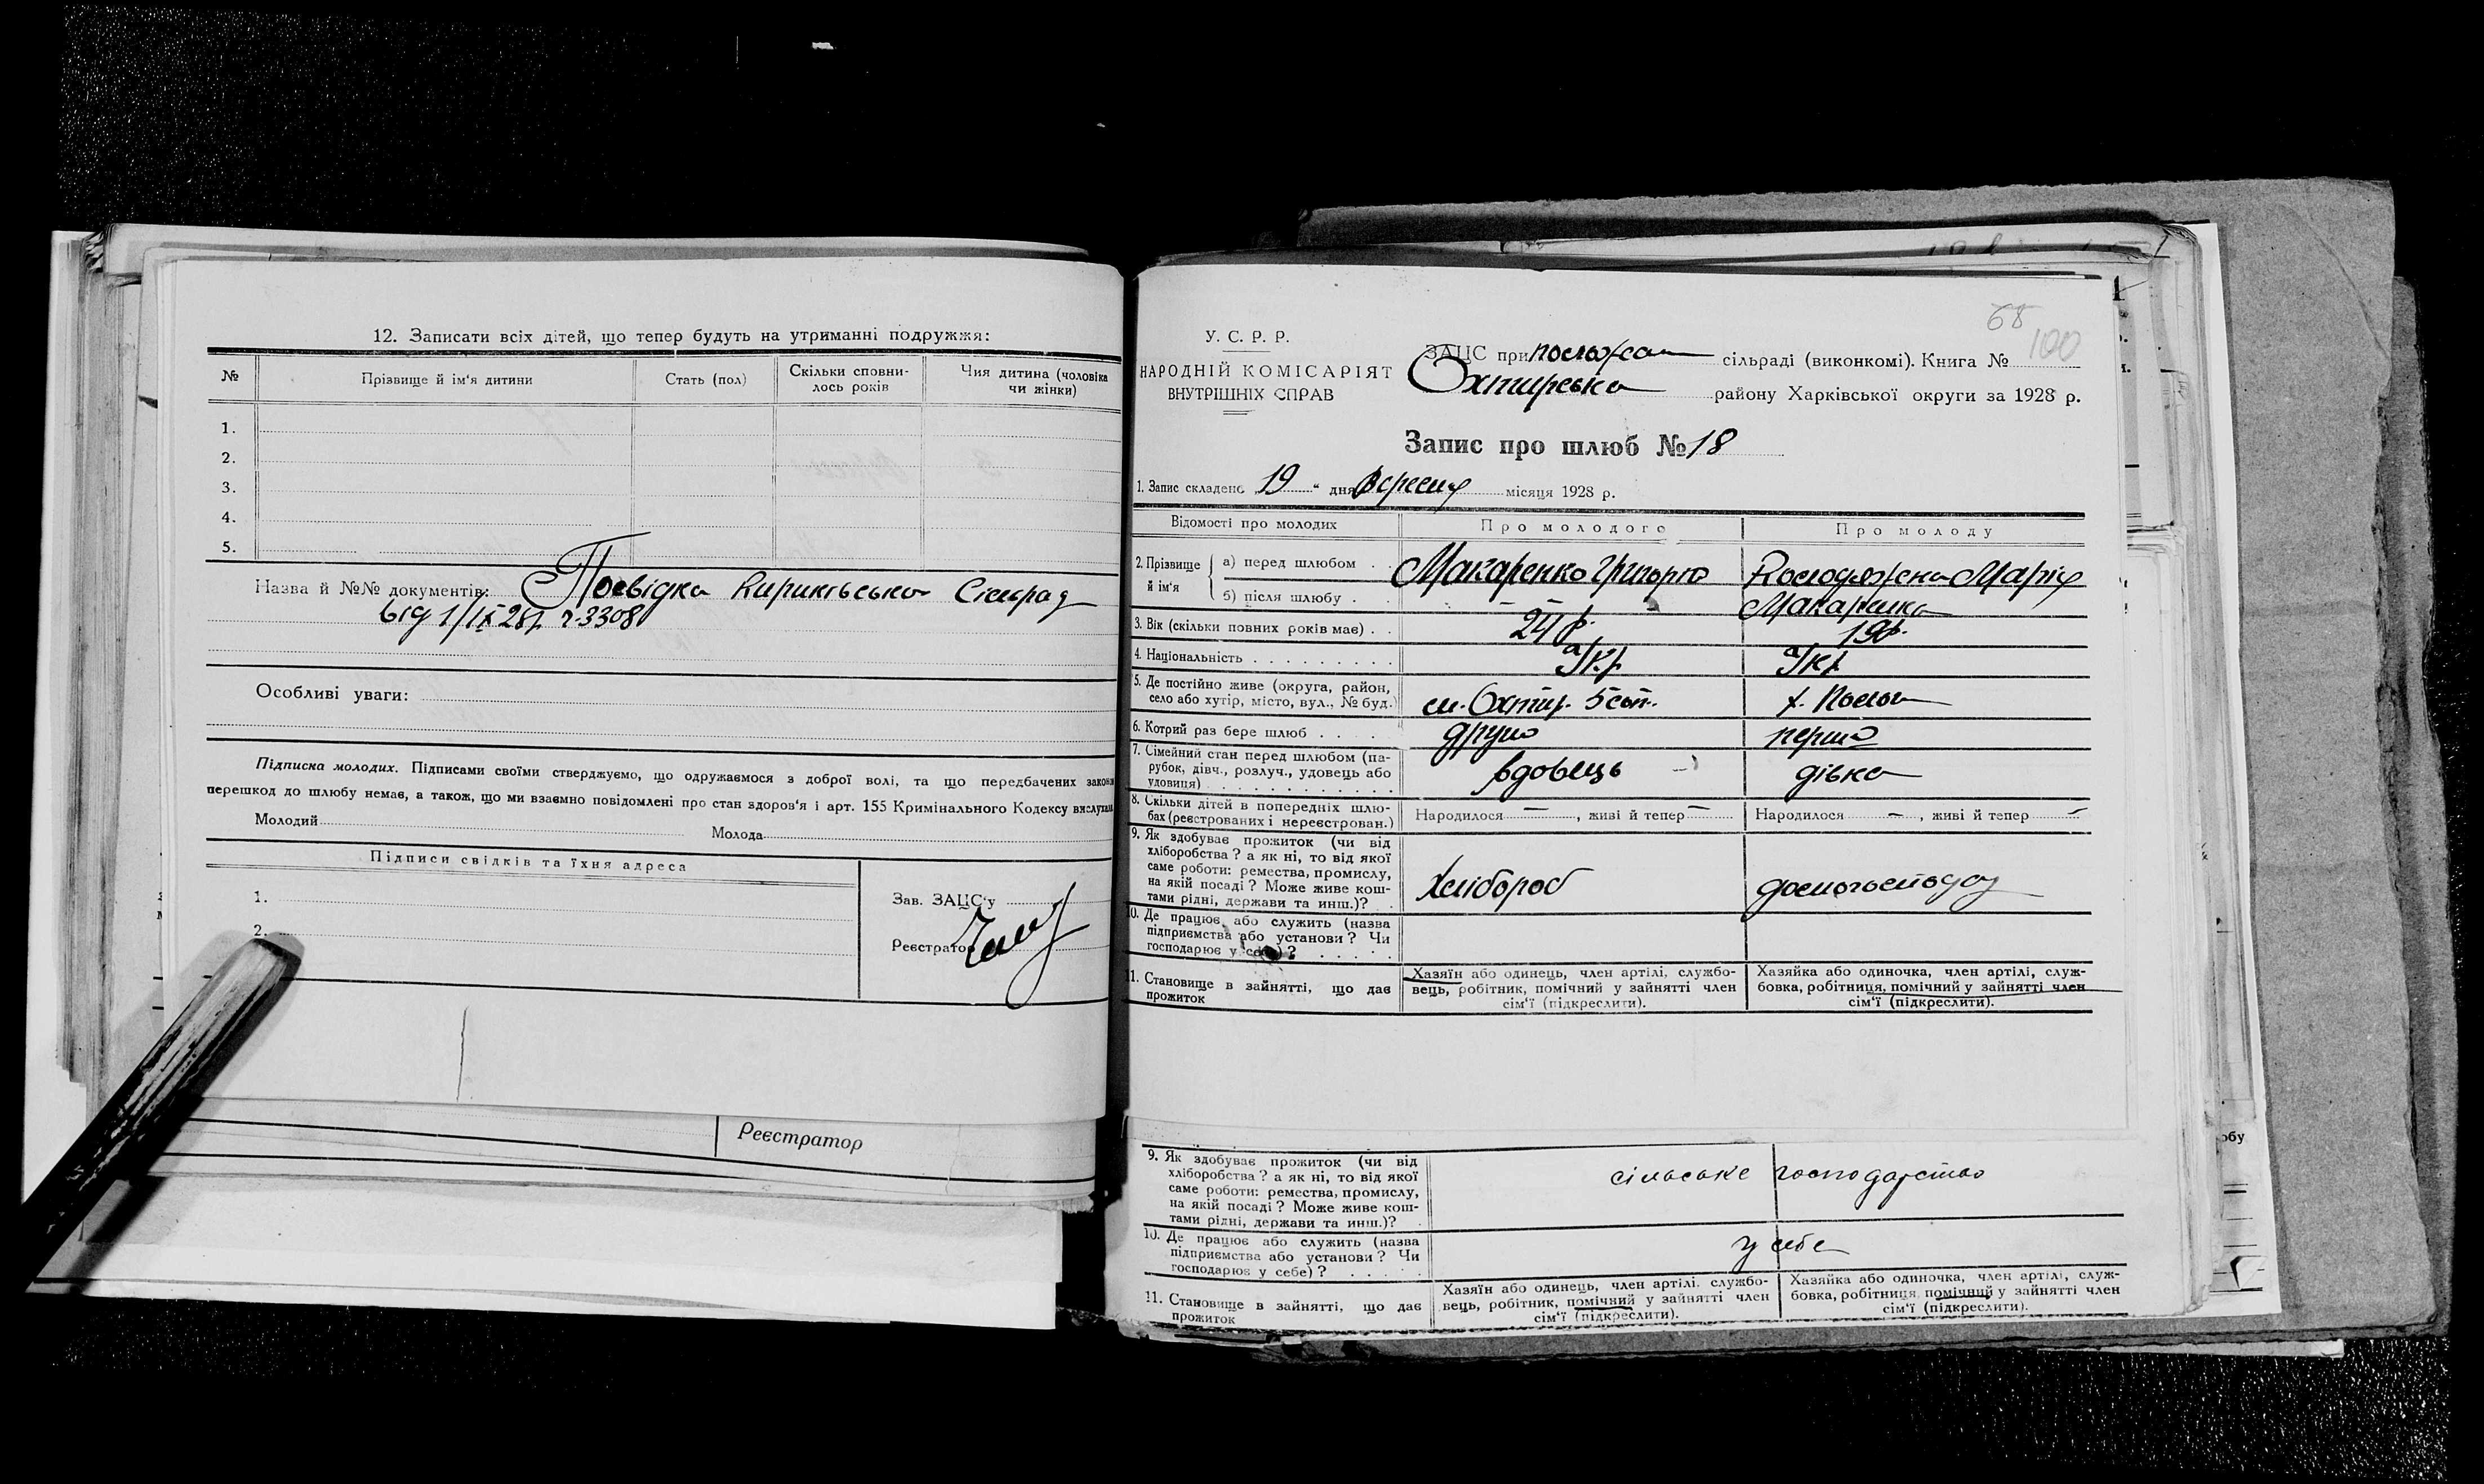 12. Записати всіх дітей, що тепер будуть на утриманні подружжя:
№ Прізвище й ім'я дитини Стать (пол) Скільки сповни-лось років Чия дитина (чоловіка чи жінки)
1.
2.
3.
4.
5.
Назва й №№ документів: Посвідка Кириківської Сільрад
від 1/IX 28р. №3308
Особливі уваги:
Підписка молодих. Підписами своїми стверджуємо, що одружаємося з доброї волі, та що передбачених закон
перешкод до шлюбу немає, а також, що ми взаємно повідомлені про стан здоров'я і арт. 155 Кримінального Кодексу вислухали
Молодий Молода
Підписи свідків та їхня адреса
1.
2.
Зав. ЗАЦС'у
Реєстратор
Реєстратор
68
100
У. С. Р. Р.
НАРОДНІЙ КОМІСАРІЯТ
ВНУТРІШНІХ СПРАВ
ЗАЦС при сільраді (виконкомі). Книга №
Охтирська району Харківської округи за 1928 р.
Запис про шлюб № 18
1. Запис складено 19 " дня Вересня місяця 1928 р.
Відомості про молодих Про молодого Про молоду
2. Прізвище й ім'я а) перед шлюбом . . Макаренко Григорію Колодяжена Марія
б) після шлюбу . – – Макаренко
3. Вік (скільки повних років має) . . 24 р. 19р.
4. Національність . . . . . . . . . Укр Укр
5. Де постійно живе (округа, район,
село або хутір, місто, вул., № буд.) м. Охтир. 5 сот. х.
6. Котрий раз бере шлюб . . . . друго перше
7. Сімейний стан перед шлюбом (па-
рубок, дівч., розлуч., удовець або
удовиця) . . . . . . . . . . . . вдовець дівка
8. Скільки дітей в попередніх шлю-
бах (реєстрованих і нереєстрован.) Народилося — , живі й тепер — Народилося — , живі й тепер —
9. Як здобуває прожиток (чи від
хліборобства? а як ні, то від якої
саме роботи: ремества, промислу,
на якій посаді? Може живе кош-
тами рідні, держави та инш.)? . Хлібороб
10. Де працює або служить (назва
підприємства або установи? Чи
господарює у себе)? . . . . . .
11. Становище в зайнятті, що дає
прожиток
Хазяїн або одинець, член артілі, службо-
вець, робітник, помічний у зайнятті член
сім'ї (підкреслити).
Хазяйка або одиночка, член артілі, служ-
бовка, робітниця, помічний у зайнятті член
сім'ї (підкреслити).
9. Як здобуває прожиток (чи від
хліборобства? а як ні, то від якої
саме роботи: ремества, промислу,
на якій посаді? Може живе кош-
тами рідні, держави та инш.)? сільське господарство
10. Де працює або служить (назва
підприємства або установи? Чи
господарює у себе)? . . . . . у себе
11. Становище в зайнятті, що дає
прожиток
Хазяїн або одинець, член артілі, службо-
вець, робітник, помічний у зайнятті член
сім'ї (підкреслити).
Хазяйка або одиночка, член артілі, служ-
бовка, робітниця, помічний у зайнятті член
сім'ї (підкреслити).